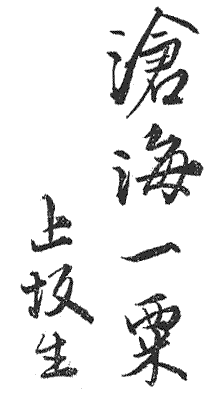 滄海一粟
上坂生